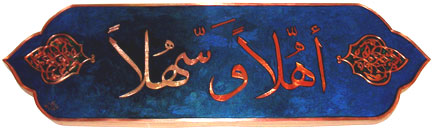 أهْلاً وَ سَّهْلاً